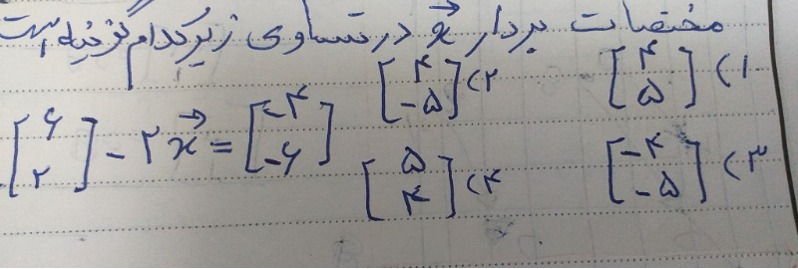 مختصات بردار x⃗ در تساوی زیر کدام گزینه است
۱) [۴ ۵] ۲) [۴ -۵]
[۶ ۲] - ۲x⃗ = [-۴ -۶]
۳) [-۴ -۵] ۴) [۵ ۴]